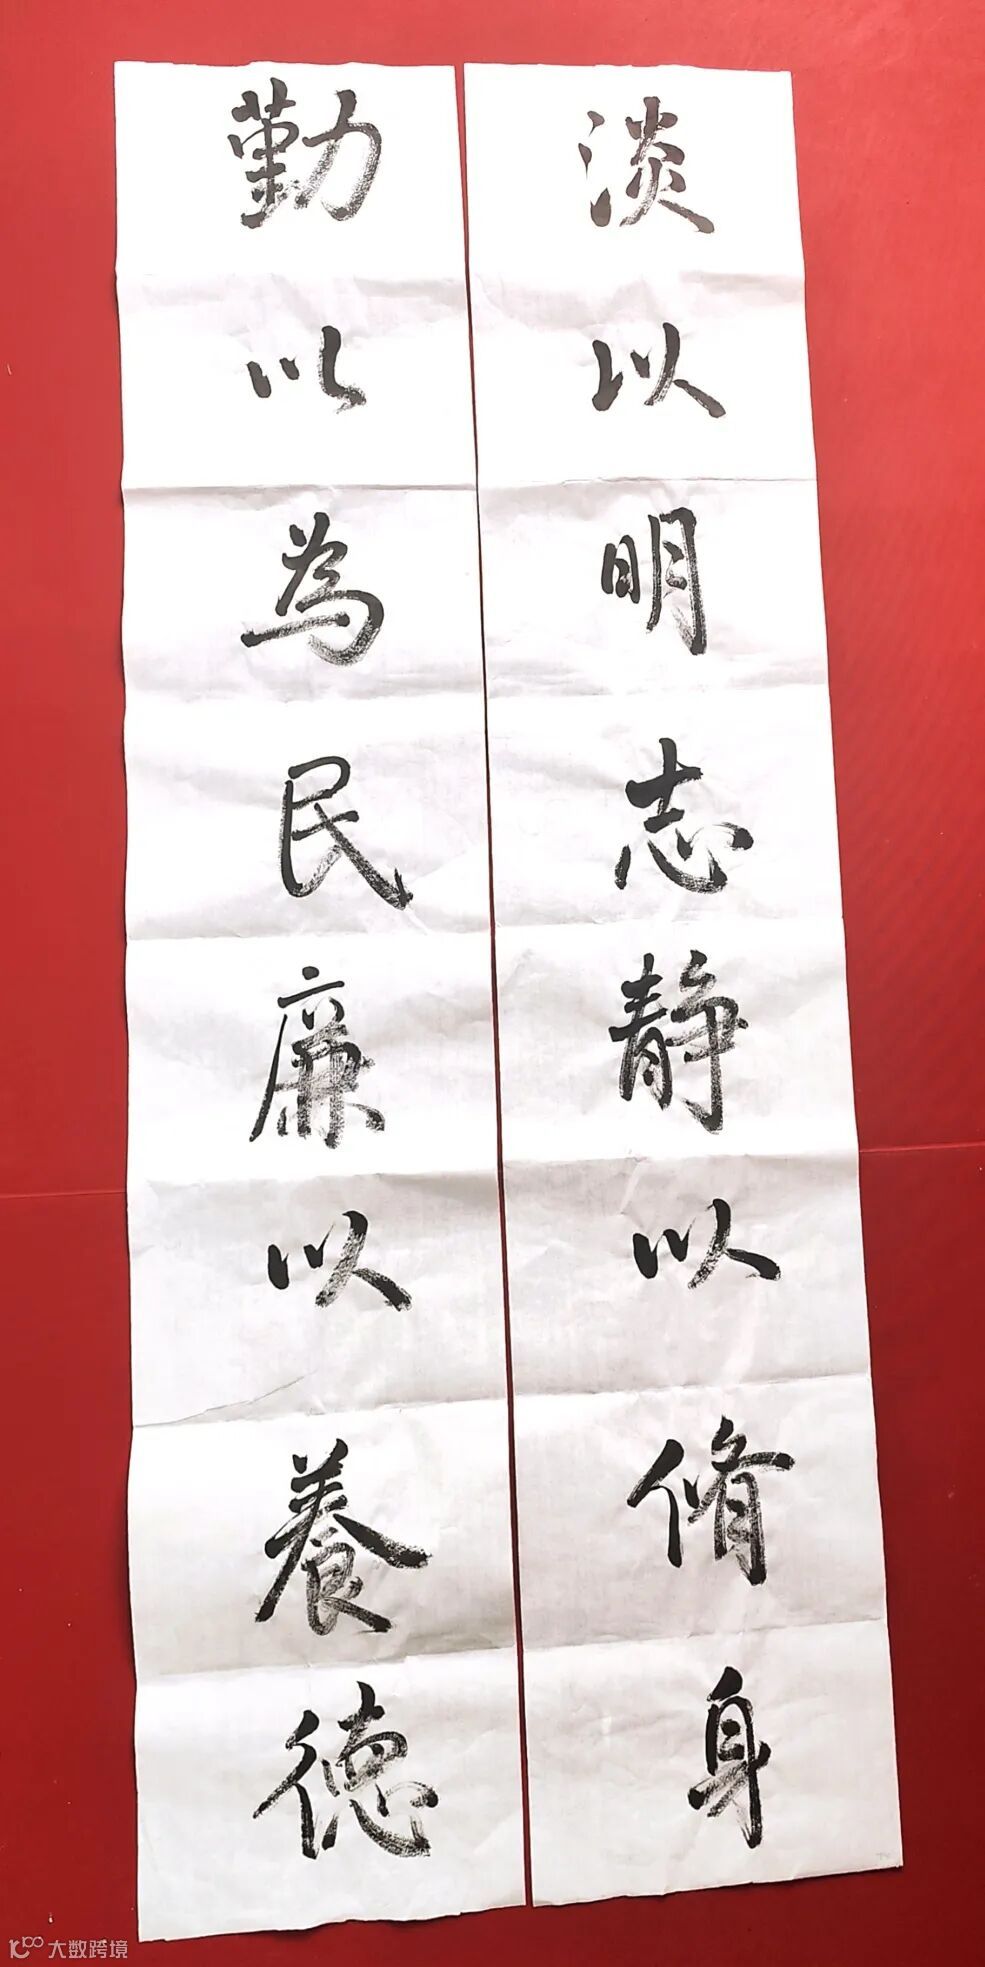 淡以明志静以脩身
勤以為民廉以養德
大数跨境